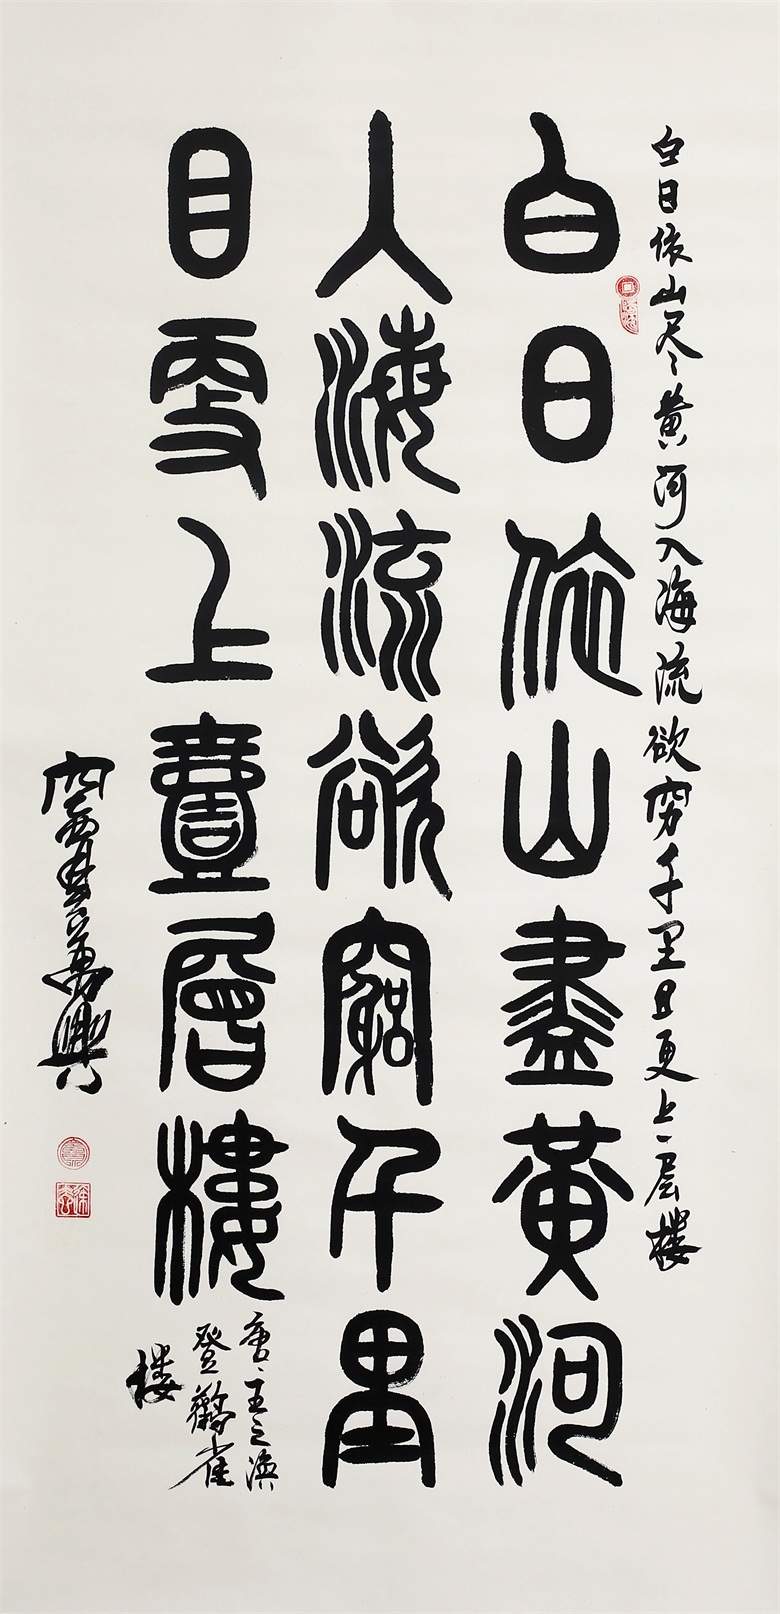 白日依山尽黄河入海流欲穷千里目更上一层楼
白日依山盡黃河
入海流欲窮千里
目更上壹層樓
唐王之渙
登鸛雀
楼